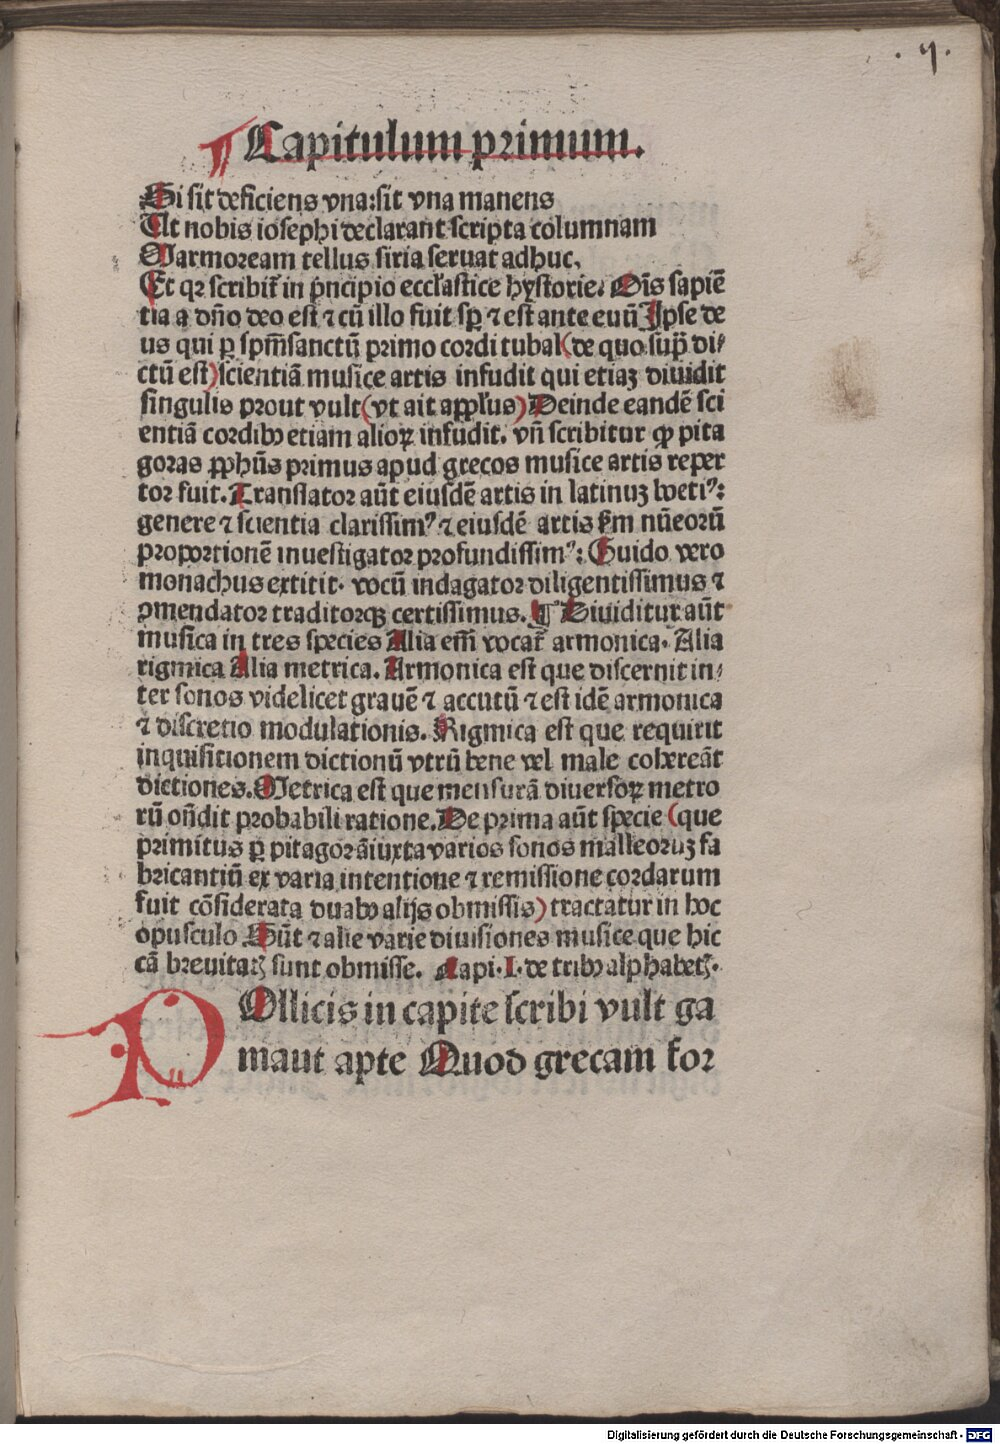 .y.
¶ Capitulum primum.
Si sit deficiens vna:sit vna manens
Ut nobis iosephi declarant scripta columnam
Marmoream tellus siria seruat adhuc.
Et qꝛ scribit᷑ in p̃ncipio eccľastice hystorie. Om̃s sapiẽ
tia a dño deo est ⁊ cũ illo fuit sp̱ ⁊ est ante euũ Ipse de
us qui ꝑ spm̃sanctũ primo cordi tubal (de quo sup̃ di⸗
ctũ est) scientiã musice artis infudit qui etiaꝫ diuidit
singulis prout vult (vt ait app̃lus) Deinde eandẽ sci
entiã cordibꝰ etiam alioꝝ infudit. vñ scribitur ꝙ pita
goras ꝓphũs primus apud grecos musice artis reper
tor fuit. Translator aũt eiusdẽ artis in latinuꝫ boetiꝰ:
genere ⁊ scientia clarissimꝰ ⁊ eiusdẽ artis ẜm nũeorũ
proportionẽ inuestigator profundissimꝰ: Guido vero
monachus extitit. vocũ indagator diligentissimus ⁊
ↄmendator traditorqꝫ certissimus. ¶ Diuiditur aũt
musica in tres species Alia em̃ vocat᷑ armonica. Alia
rigmica Alia metrica. Armonica est que discernit in⸗
ter sonos videlicet grauẽ ⁊ accutũ ⁊ est idẽ armonica
⁊ discretio modulationis. Rigmica est que requirit
inquisitionem dictionũ vtrũ bene vel male cohereãt
dictiones. Metrica est que mensurã diuersoꝝ metro
rũ oñdit probabili ratione. De prima aũt specie (que
primitus ꝑ pitagorã iuxta varios sonos malleoruꝫ fa
bricantiũ ex varia intentione ⁊ remissione cordarum
fuit cõsiderata duabꝰ alijs obmissis) tractatur in hoc
opusculo Sũt ⁊ alie varie diuisiones musice que hic
cã breuitatꝭ sunt obmisse. Capi. I. de tribꝰ alphabetꝭ.
POllicis in capite scribi vult ga
maut apte Quod grecam for
Digitalisierung gefördert durch die Deutsche Forschungsgemeinschaft - DFG